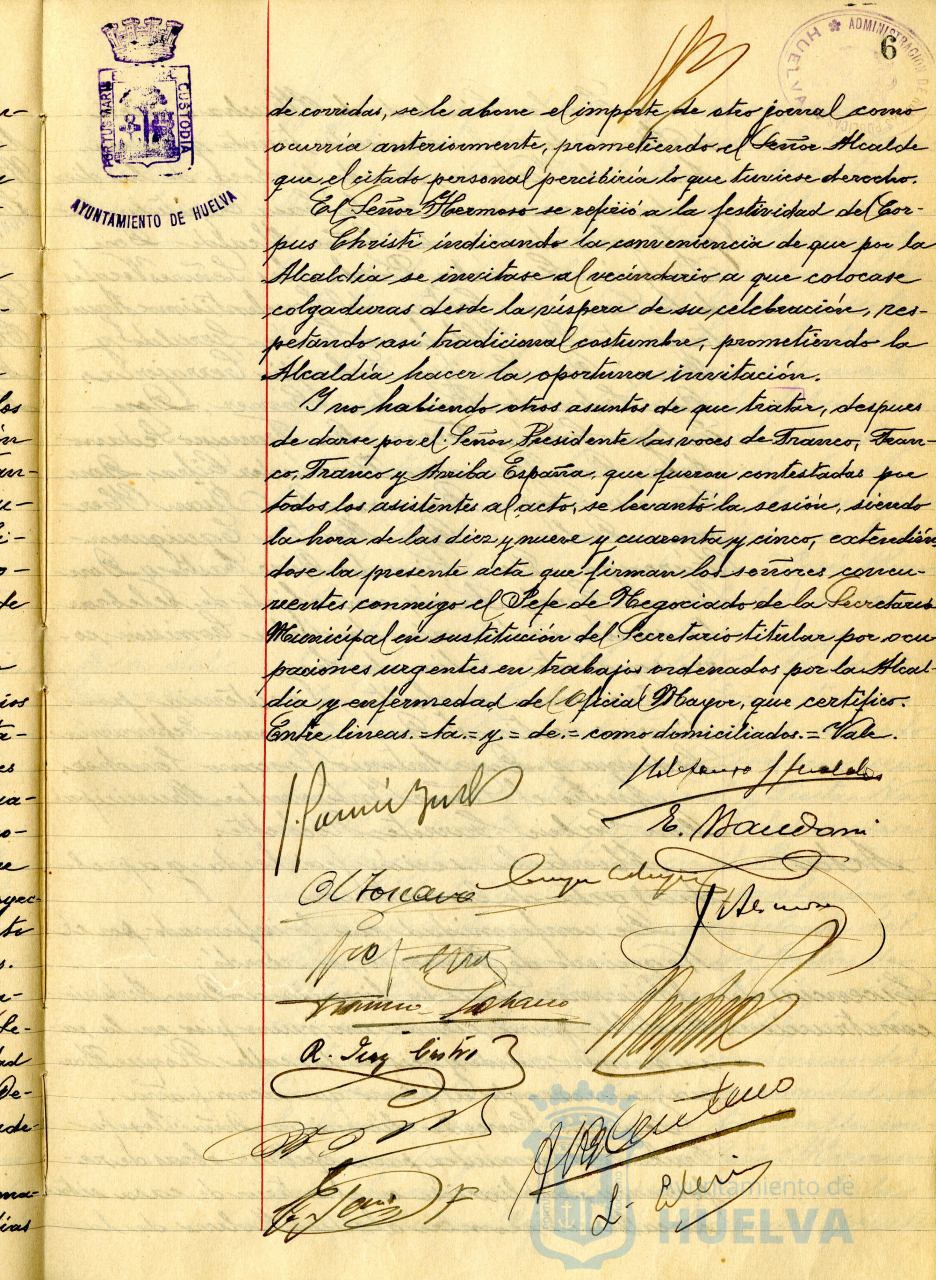 6
ADMINISTRACIÓN DE
HUELVA
PORTUS MARIS
CUSTODIA
AYUNTAMIENTO DE HUELVA
de corridas, se le abone el importe de otro jornal como
ocurría anteriormente, prometiendo el Señor Alcalde
que el citado personal percibiría lo que tuviese derecho.
El Señor Hermoso se refirió a la festividad del Cor-
pus Christi indicando la conveniencia de que por la
Alcaldía se invitase al vecindario a que colocase
colgaduras desde la víspera de su celebración, res-
petando así tradicional costumbre, prometiendo la
Alcaldía hacer la oportuna invitación.
Y no habiendo otros asuntos de que tratar, despues
de darse por el Señor Presidente las voces de Franco, Fran-
co, Franco y Arriba España, que fueron contestadas por
todos los asistentes al acto, se levantó la sesión, siendo
la hora de las diez y nueve y cuarenta y cinco, extendién
dose la presente acta que firman los señores concu-
rrentes conmigo el Jefe de Negociado de la Secretaria
Municipal en sustitución del Secretario titular por ocu
paciones urgentes en trabajos ordenados por la Alcal-
día y enfermedad del Oficial Mayor, que certifico.
Entre lineas.=ta.=y=de.=como domiciliados.=Vale.
E.
R. Díaz Castro
Ayuntamiento de
HUELVA